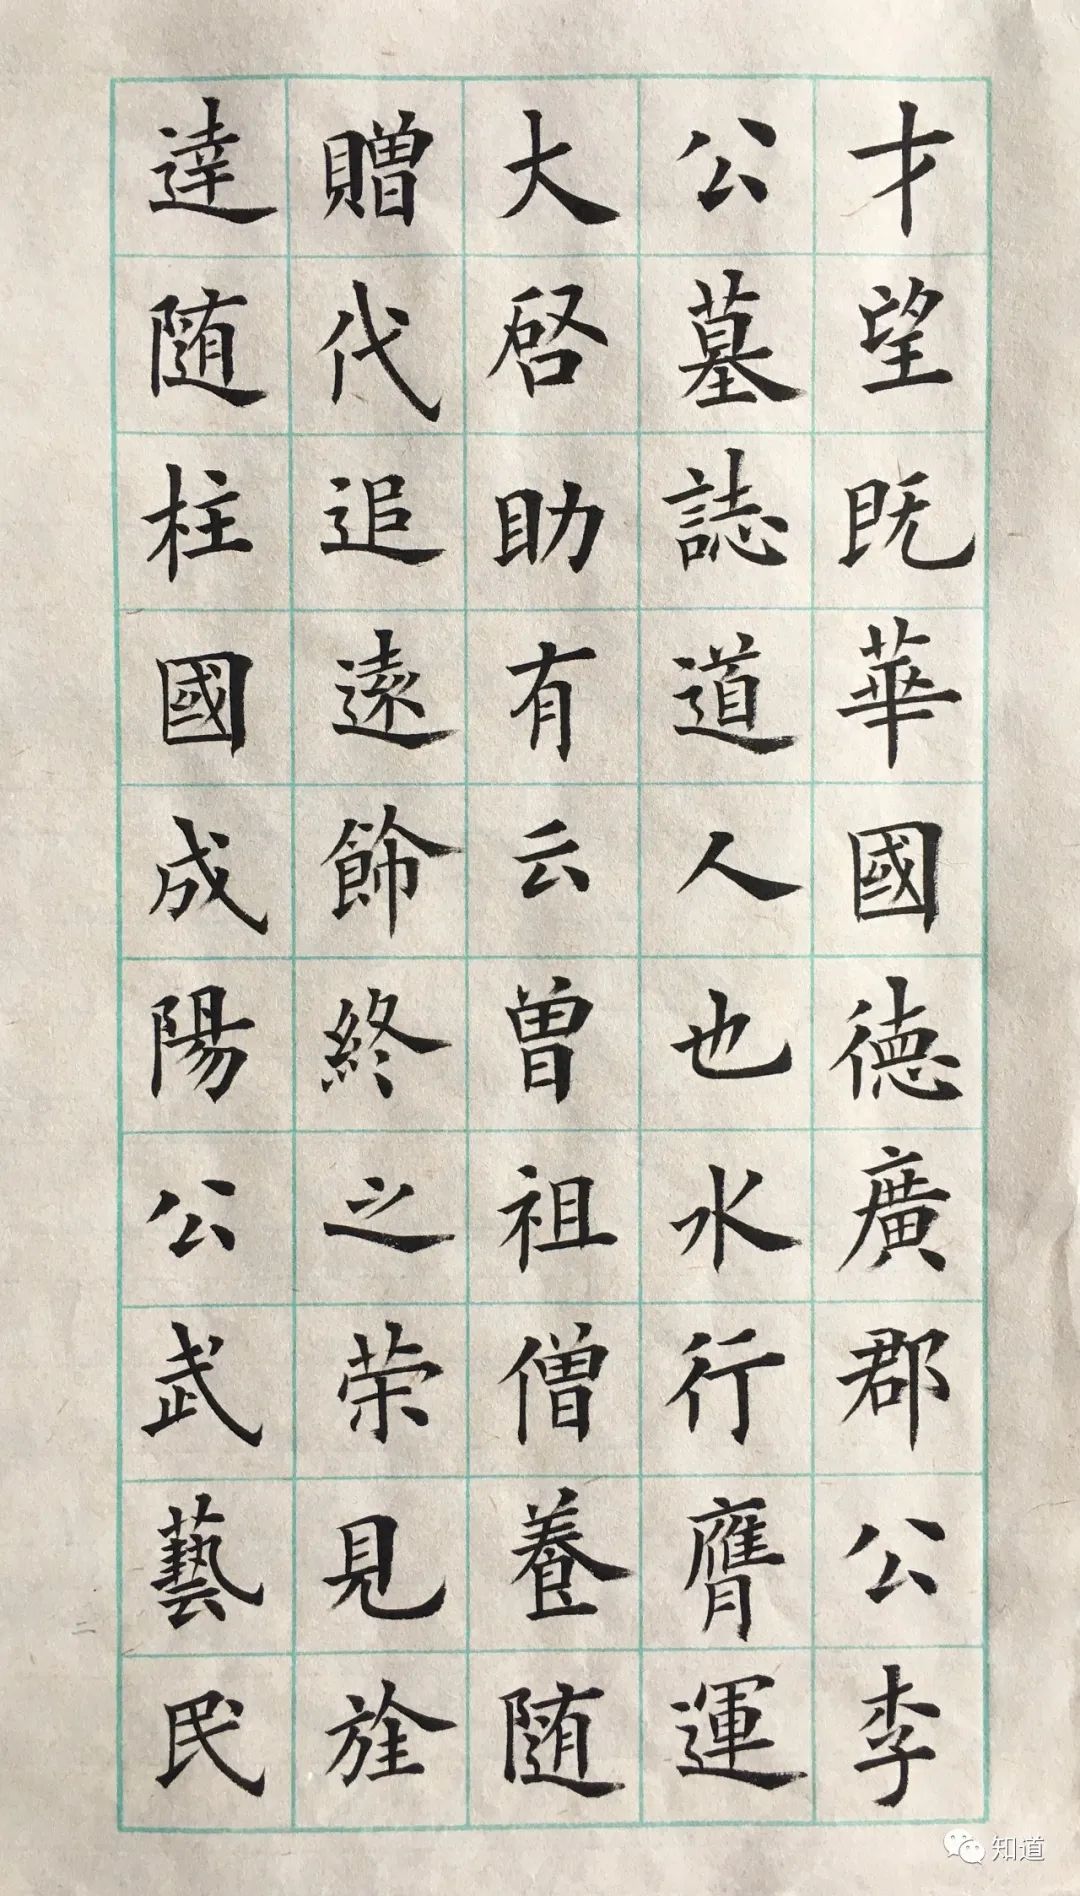 才望既華國德廣郡公李
公墓誌道人也水行膺運
大啓助有云曾祖僧養随
贈代追遠飾終之荣見旌
達随柱國成陽公武藝民
二
知道